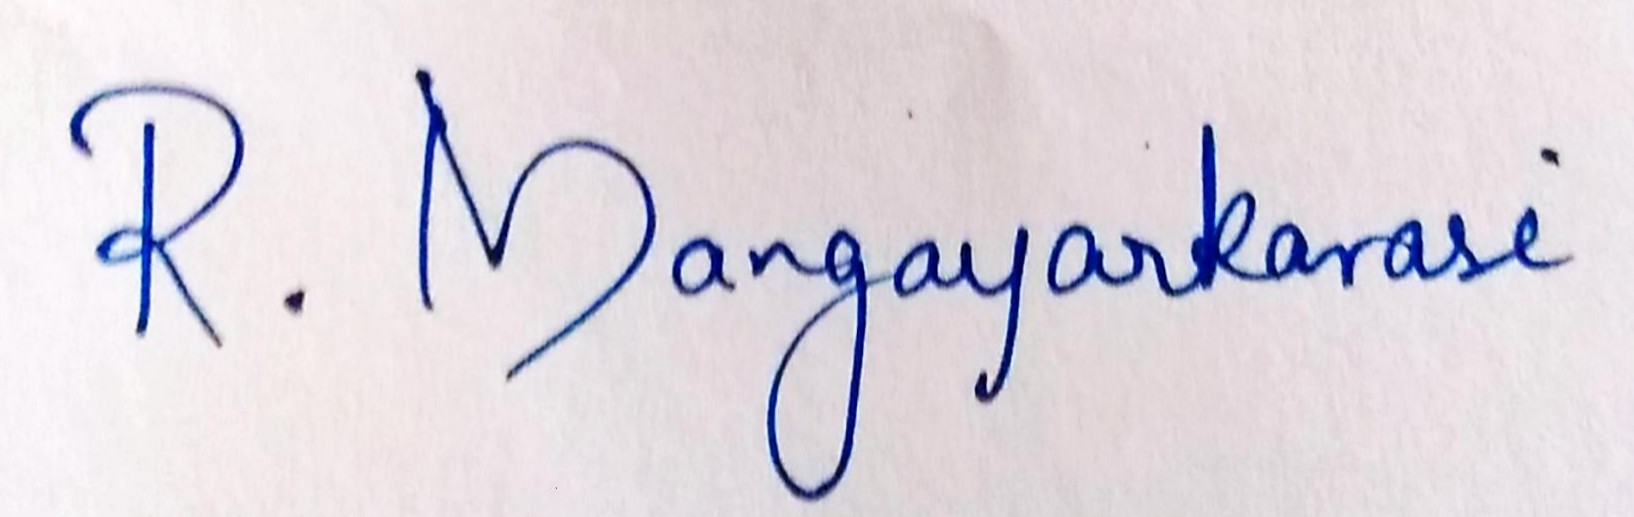 R. Mangayarkarasi